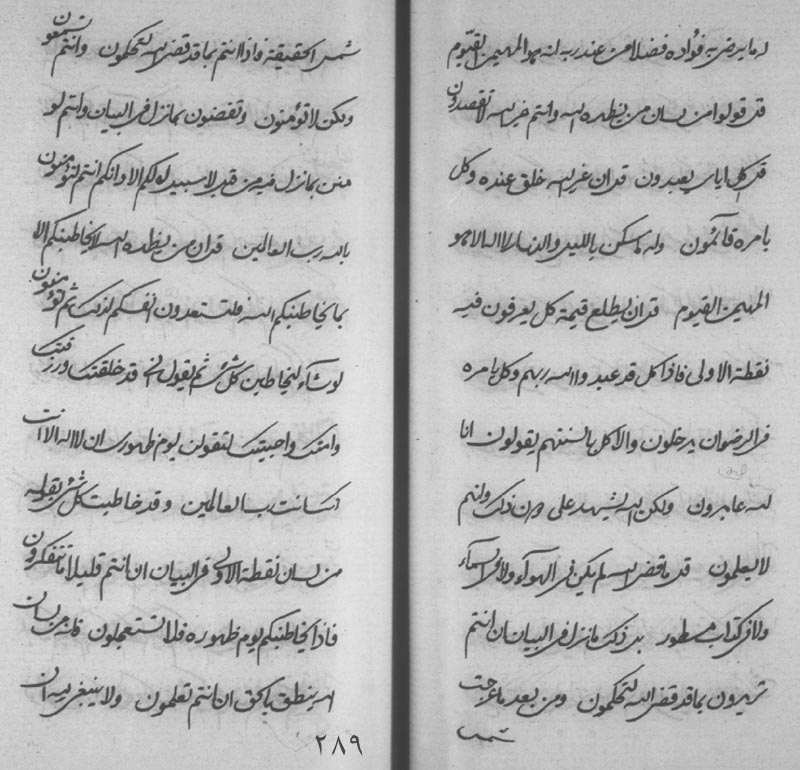 له ما يرضى به فؤاده فضلا من عند ربه انه لهو المهيمن القيّوم
قل قولوا من لسان من يظهره الله وانتم غير الله لا تقصدون
قل كل اياي يعبدون قل ان غير الله خلق عنده وكل
بامره قائمون وله ما سكن بالليل والنهار لا اله الا هو
المهيمن القيوم قل ان ليطلع قيمة كل يعرفون فيه
نقطة الاولى فاذا كل قد عبدوا الله ربهم وكل بامره
في الرضوان يدخلون والا كل بالسنتهم يقولون انا
لله عابدون ولكن الله ليشهد على دون ذلك وانهم
لا يعلمون قل ما قضى الله لم يكن في الهوآء ولا في السمآء
ولا في كتاب مسطور بل ذلك ما نزل في البيان ان انتم
تريدون بما قد قضى الله لتحكمون ومن بعد ما عرجت
شمس
شمس الحقيقة فاذا انتم بما قد قضى الله لتحكمون وانتم تسمعون
ولكن لا تؤمنون وتقضون بما نزل في البيان وانتم لو
منن بما نزل فيه من قبل لا سبيل لكم الا وانكم انتم لتؤمنون
بالله رب العالمين قل ان من يظهره الله لا يخاطبنكم الا
بما يخاطبنكم الله فلتستعدون انفسكم لذلك ثم تؤمنون
لو شآء ليخاطبن كل شئ ثم يقول اني قد خلقتك ورزقتك
وامتك واحييتك لتقولن يوم ظهوري ان لا اله الا انت
انك انت رب العالمين وقد خاطبت كل شئ بقوله
من لسان نقطة الاولى في البيان ان انتم قليلا ما تتفكرون
فاذا يخاطبنكم يوم ظهوره فلا تستعجلون فانه من لسان
الله ينطق بالحق ان انتم تعلمون ولا ينبغي لله ان
٢٨٩